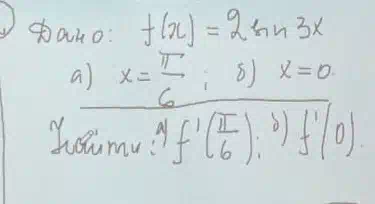 Дано: f(x) = 2 sin 3x
а) x = π/6 ; б) x = 0
Найти: а) f'(π/6); б) f'(0).